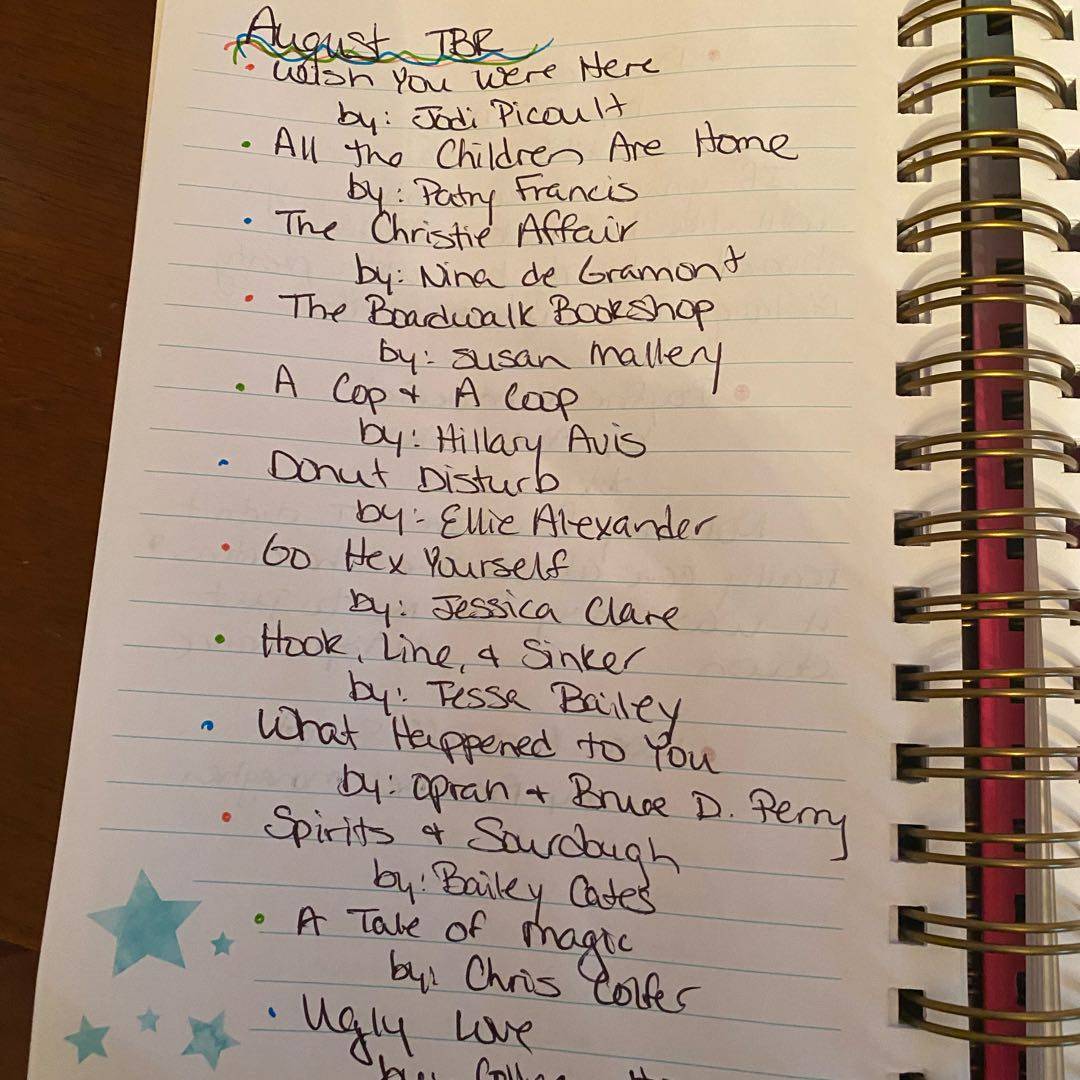 August TBR
• Wish You Were Here
by: Jodi Picoult
• All the Children Are Home
by: Patry Francis
• The Christie Affair
by: Nina de Gramont
• The Boardwalk Bookshop
by: Susan Mallery
• A Cop & A Coop
by: Hillary Avis
• Donut Disturb
by: Ellie Alexander
• Go Hex Yourself
by: Jessica Clare
• Hook, Line, & Sinker
by: Tessa Bailey
• What Happened to You
by: Oprah + Bruce D. Perry
• Spirits & Sourdough
by: Bailey Cates
• A Tale of Magic
by: Chris Colfer
• Ugly Love
by: